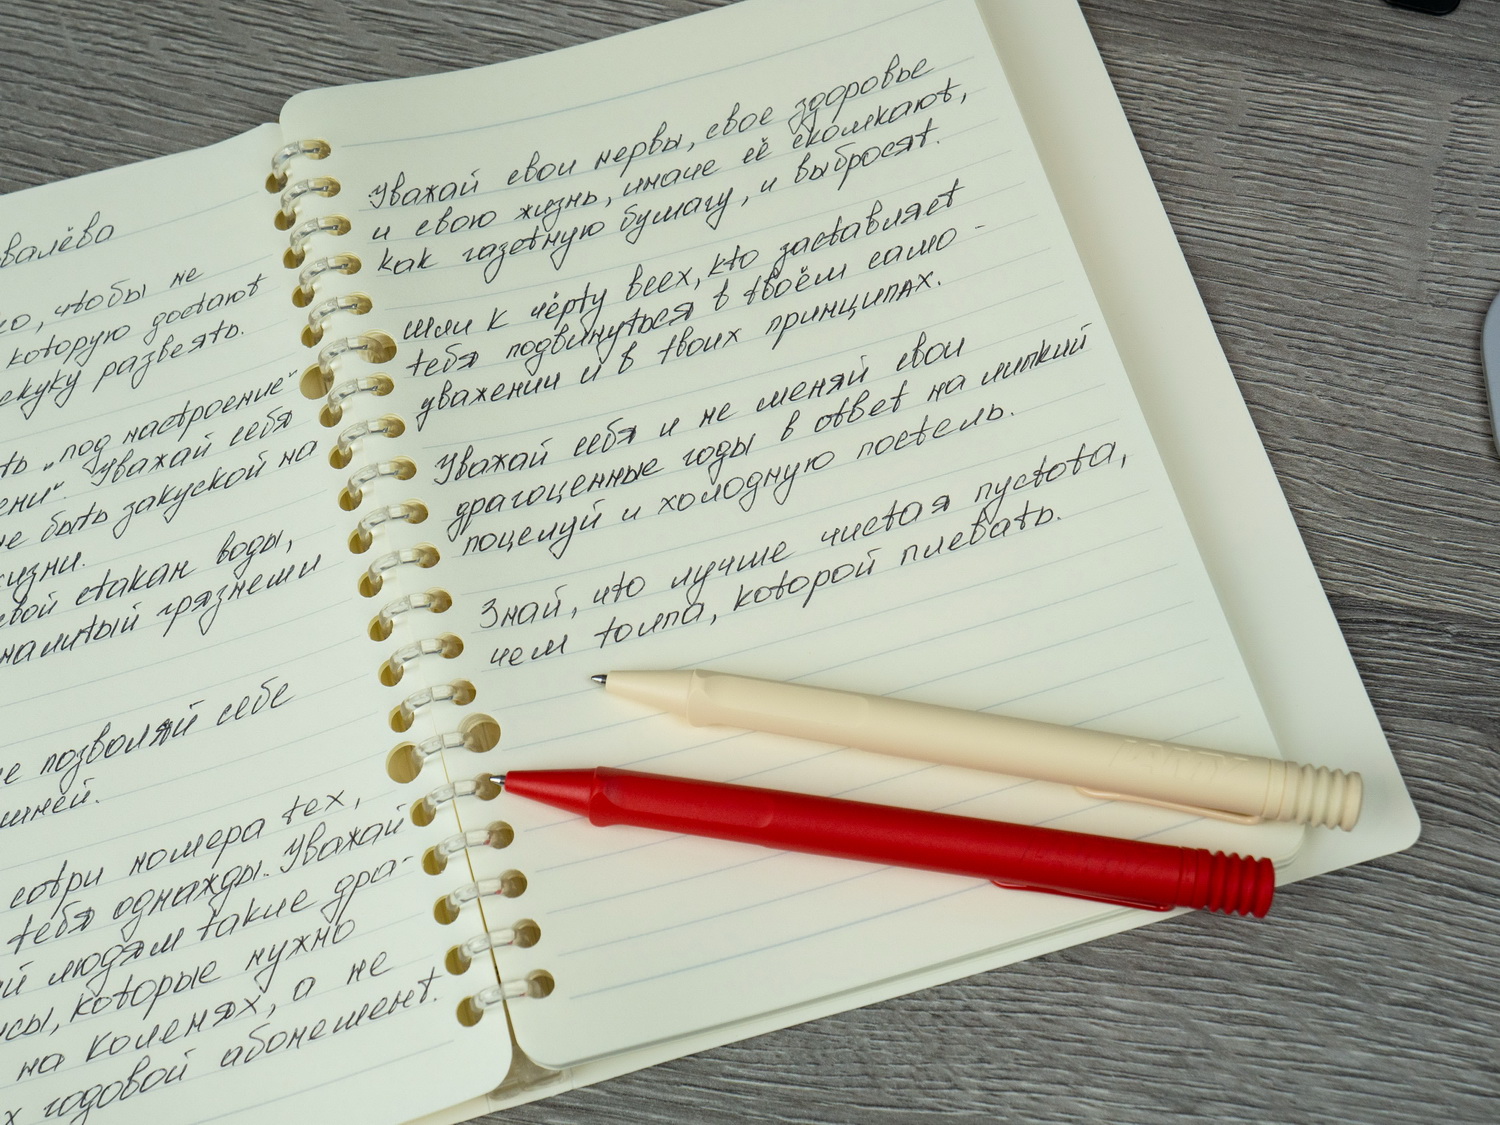 валёва
, чтобы не
которую достают
секуку развеять.
ть „под настроение"
ени". Уважай себя
не быть закуской на
жизни.
свой стакан воды,
налитый грязнеми
не позволяй себе
шней.
сотри номера тех,
тебя однажды. Уважай
й людям такие дра-
сы, которые нужно
на коленях, а не
х годовой абонемент.
Уважай свои нервы, свое здоровье
и свою жизнь, иначе её скомкают,
как газетную бумагу, и выбросят.
Шли к чёрту всех, кто заставляет
тебя подвинуться в твоём само-
уважении и в твоих принципах.
Уважай себя и не меняй свои
драгоценные годы в ответ на липкий
поцелуй и холодную постель.
Знай, что лучше чистая пустота,
чем толпа, которой плевать.